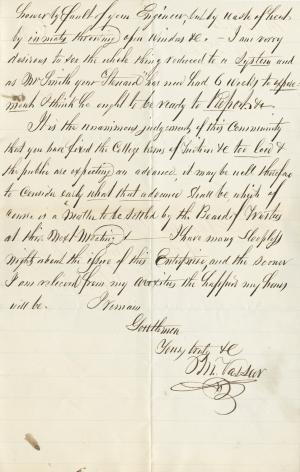 however by fault of your Engineer, but by waste of heat
by inmates throwing open windows &c. - I am very
desirous to see the whole thing reduced to a System and
as Mr Smith your Steward has now had 6 weeks to experi-
ment I think he ought to be ready to Report &c
It is the unanimous judgement of this Community
that you have fixed the College terms of Tuition &c too low &
the public are expecting an advance, it may be well therefore
to consider early what that advance shall be, which of
course is a matter to be settled by the Board of Trustees
at their Next Meeting I have many Sleepless
nights about the issue of this Enterprise, and the sooner
I am relieved from my anxieties the happier my hours
will be. I remain
Gentlemen
Yours truly &c
M. Vassar